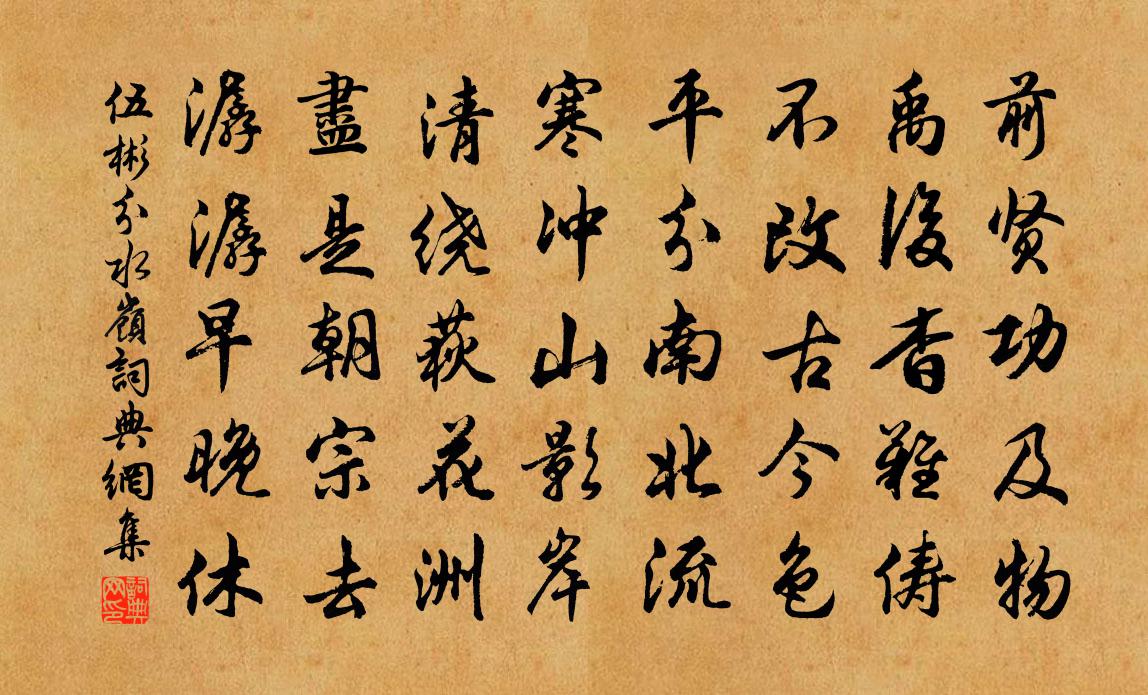 前贤功及物
禹後杳難俦
不改古今色
平分南北流
寒冲山影岸
清绕荻花洲
盡是朝宗去
潺潺早晚休
伍彬分水嶺詞典網集
詞典
网印